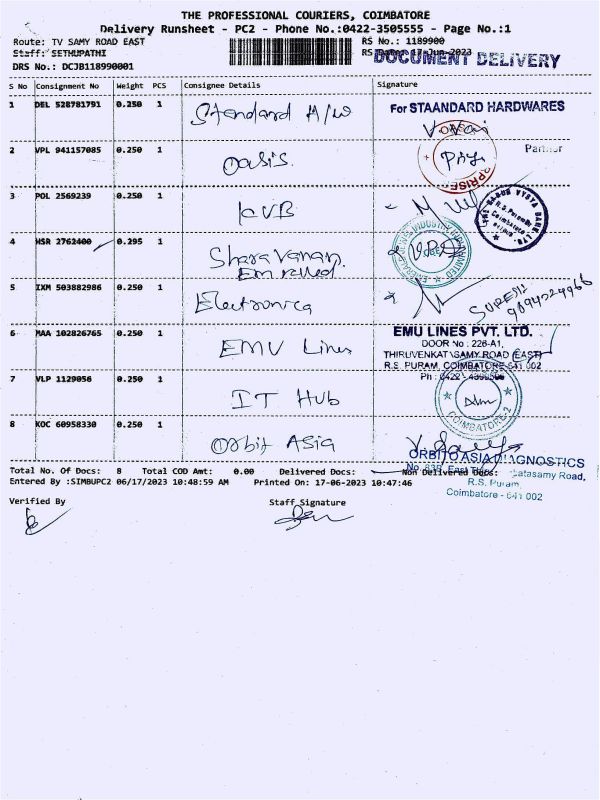 THE PROFESSIONAL COURIERS, COIMBATORE
Delivery Runsheet - PC2 - Phone No.:0422-3505555 - Page No.:1
Route: TV SAMY ROAD EAST RS No.: 1189900
Staff: SETHUPATHI RS Date: 17-Jun-2023
DOCUMENT DELIVERY
DRS No.: DCJB118990001
S No Consignment No Weight PCS Consignee Details Signature
1 DEL 528781791 0.250 1 Standard H/W
For STAANDARD HARDWARES
Partner
2 VPL 941157085 0.250 1 Oasis
3 POL 2569239 0.250 1 KVB
4 HSR 2762400 0.295 1 Sharavanan
5 IXM 503882986 0.250 1 Electronica
SURESH
6 MAA 102826765 0.250 1 EMU Lines
EMU LINES PVT. LTD.
DOOR No : 226-A1,
THIRUVENKATASAMY ROAD (EAST)
R.S. PURAM, COIMBATORE-641 002
7 VLP 1129056 0.250 1 IT Hub
COIMBATORE-2
8 KOC 60958330 0.250 1 Orbit Asia
ORBITO ASIA DIAGNOSTICS
R.S. Puram,
Coimbatore - 641 002
Total No. Of Docs: 8 Total COD Amt: 0.00 Delivered Docs: Non Delivered Docs:
Entered By :SIMBUPC2 06/17/2023 10:48:59 AM Printed On: 17-06-2023 10:47:46
Verified By Staff Signature